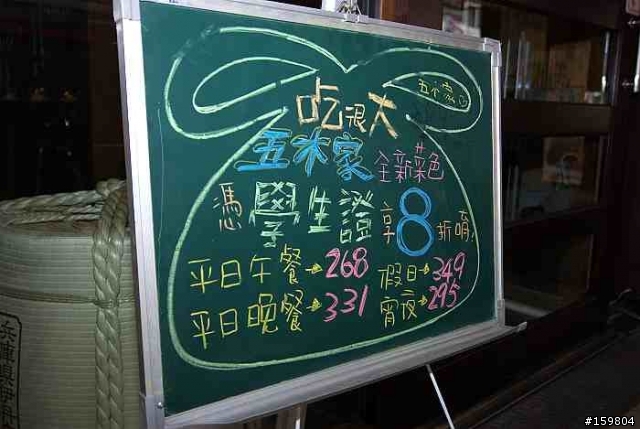 吃很大
五木家
五木家 全新菜色
憑學生證享8折唷!
平日午餐→268 假日→349
平日晚餐→331 宵夜→295
兵庫県伊丹
#159804